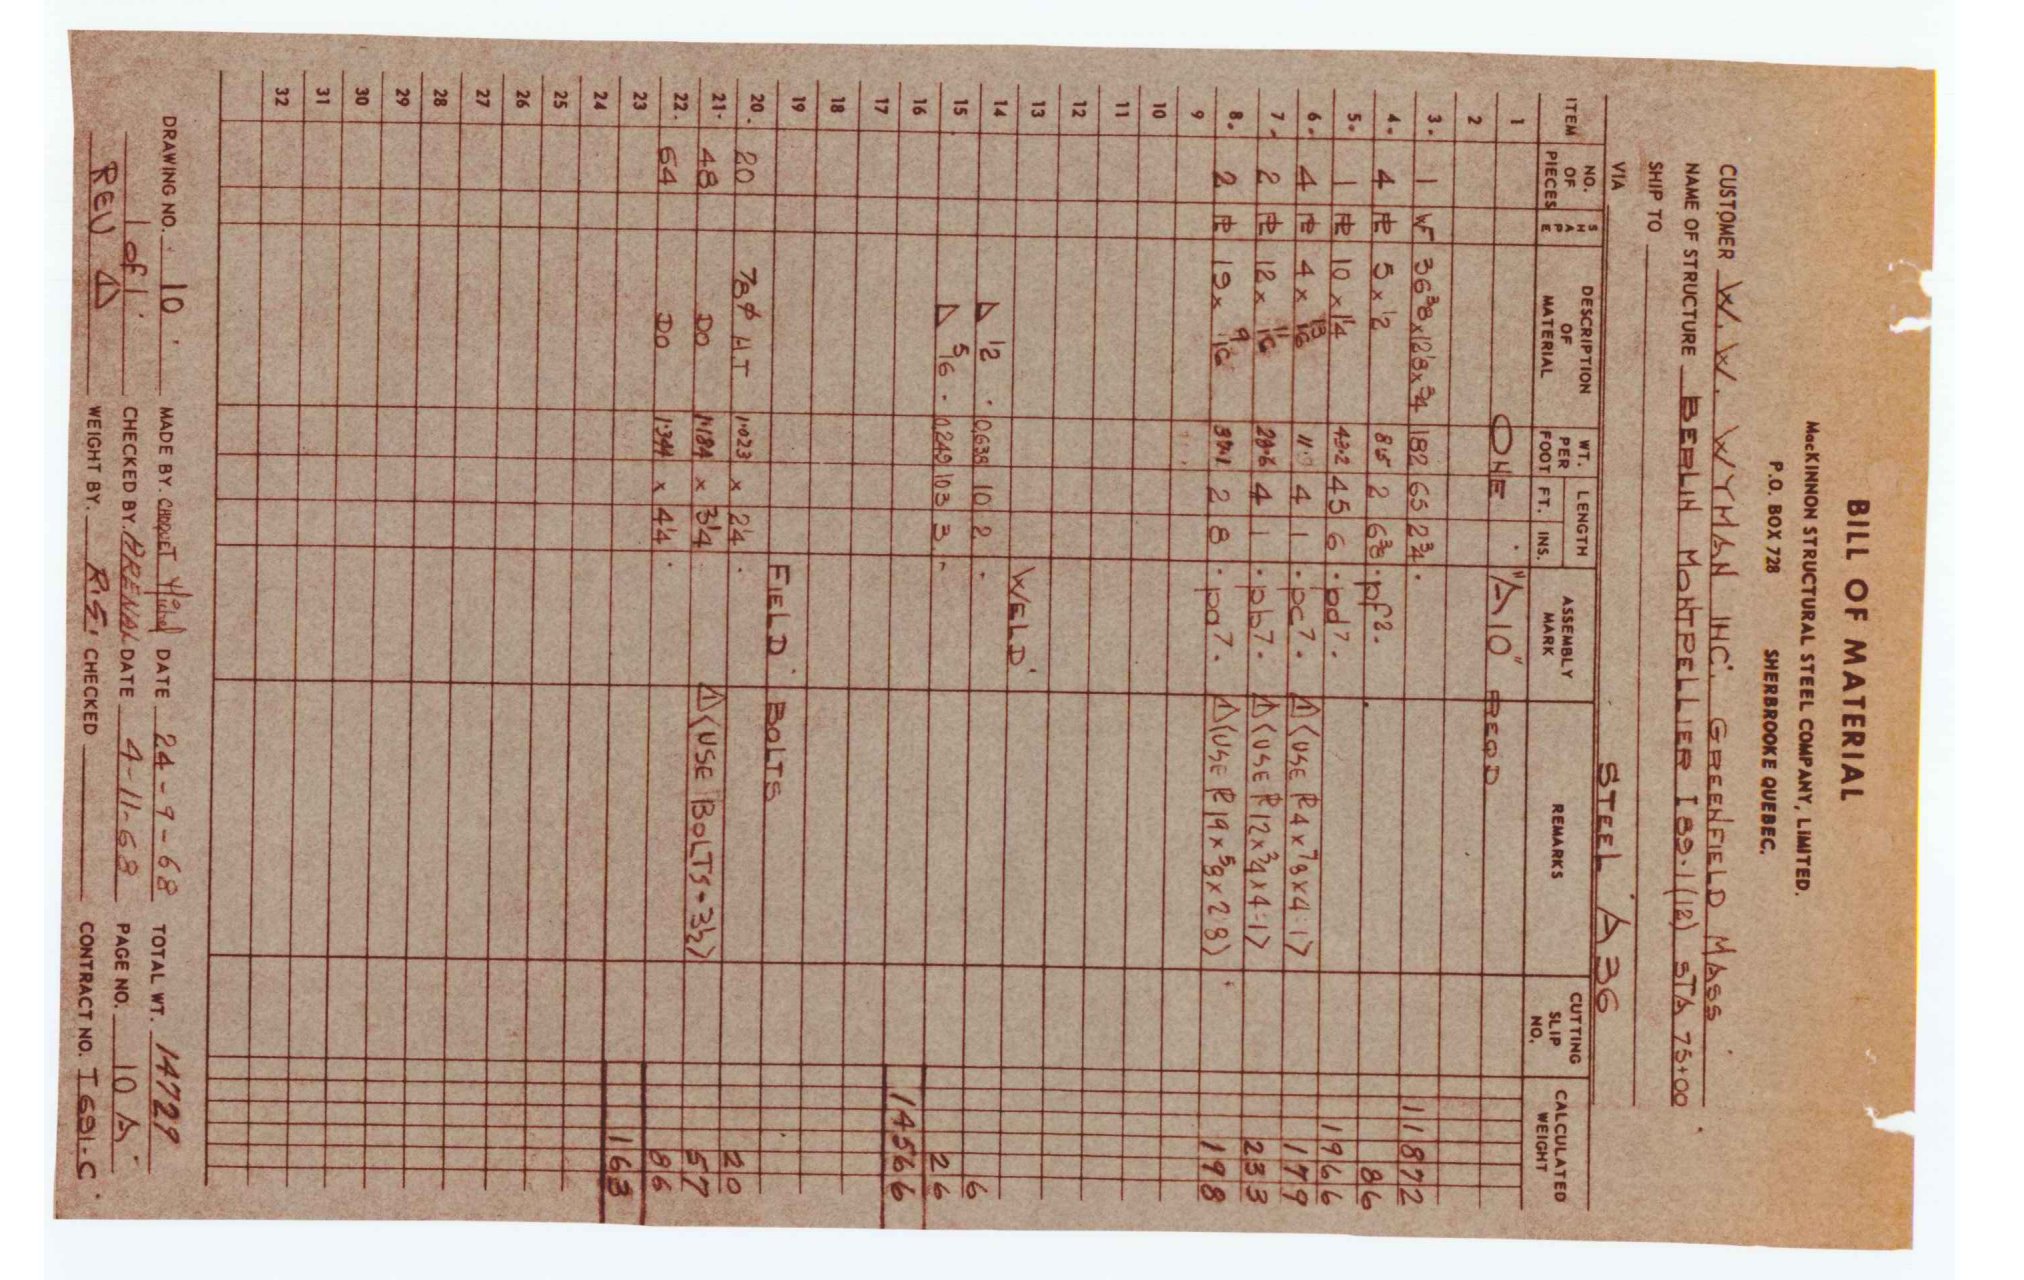 BILL OF MATERIAL
MacKINNON STRUCTURAL STEEL COMPANY, LIMITED.
P.O. BOX 728 SHERBROOKE QUEBEC.
CUSTOMER W. W. WYMAN INC. GREENFIELD MASS
NAME OF STRUCTURE BERLIN MONTPELLIER I 89-1(12) STA 75+00
SHIP TO
VIA STEEL A 36
ITEM NO. OF PIECES SHAPE DESCRIPTION OF MATERIAL WT. PER FOOT LENGTH FT. INS. ASSEMBLY MARK REMARKS CUTTING SLIP NO. CALCULATED WEIGHT
1 ONE "A10" REQD
2
3. 1 WF 36 3/8 x 12 1/8 x 3/4 182 65 2 3/4 11872
4. 4 PL 5 x 1/2 8.5 2 6 3/8 pf2. 86
5. 1 PL 10 x 1 1/4 43.2 45 6 pd7. 1966
6. 4 PL 4 x 13/16 4 1 pc7. △1 (USE PL 4 x 7/8 x 4-1) 179
7. 2 PL 12 x 11/16 28.6 4 1 pb7. △1 (USE PL 12 x 3/4 x 4-1) 233
8. 2 PL 19 x 9/16 2 8 pa7. △1 (USE PL 19 x 5/8 x 2-8) 198
9
10
11
12
13 WELD
14 △ 1/2 0.638 10 2 6
15 △ 5/16 0.249 103 3 26
16 14566
17
18
19 FIELD BOLTS
20. 20 7/8 φ HT 1.023 x 2 1/4 20
21. 48 DO 1.184 x 3 1/4 △1 (USE BOLTS - 3 1/2) 57
22. 64 DO 1.344 x 4 1/4 86
23 163
24
25
26
27
28
29
30
31
32
DRAWING NO. 10 MADE BY. CHOQUET Michel DATE 24-9-68 TOTAL WT. 14729
1 of 1 CHECKED BY. ARENAL DATE 4-11-68 PAGE NO. 10 A
REV △1 WEIGHT BY. R.S. CHECKED CONTRACT NO. T 691-C